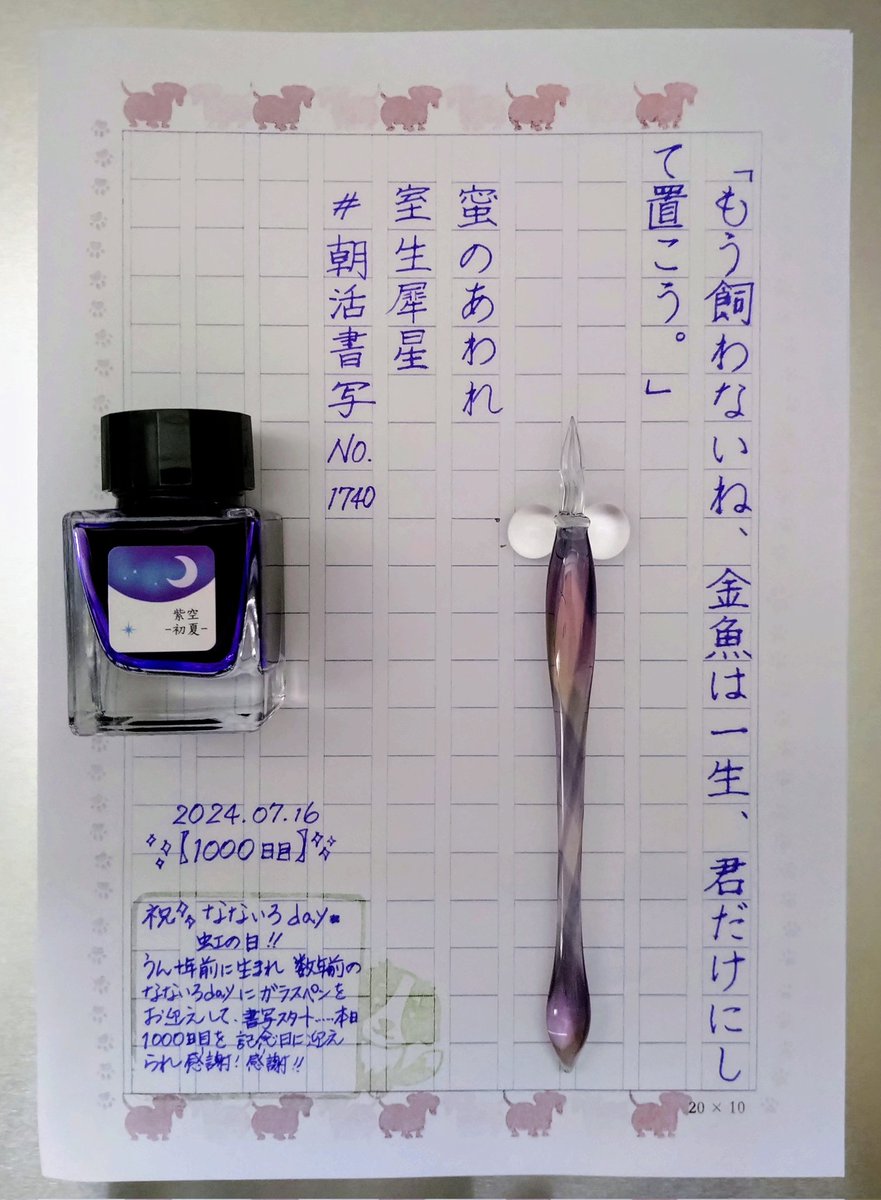 「もう飼わないね、金魚は一生、君だけにし
て置こう。」
蜜のあわれ
室生犀星
#朝活書写 No. 1740
紫空
-初夏-
2024.07.16
【1000日目】
祝 なないろday
虹の日!!
うん十年前に生まれ 数年前の
なないろdayにガラスペンを
お迎えして、書写スタート……本日
1000日目を 記念日に迎え
られ感謝!感謝!!
20 × 10